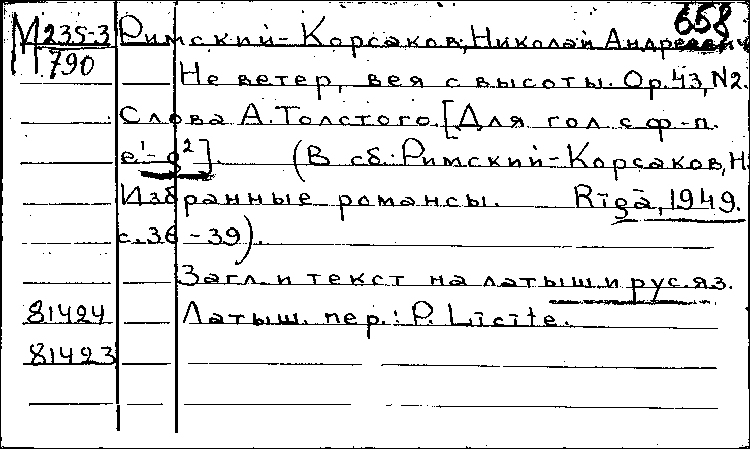 658
М 235-3 Римский-Корсаков, Николай Андреевич
790 Не ветер, вея с высоты. Op.43, N2.
Слова А.Толстого. [Для гол. с ф-п.
e¹-g²]. (В сб.: Римский-Корсаков, Н.
Избранные романсы. Rīgā, 1949.
с.36-39).
Загл. и текст на латыш. и рус. яз.
81424 Латыш. пер.: P. Līcīte.
81423